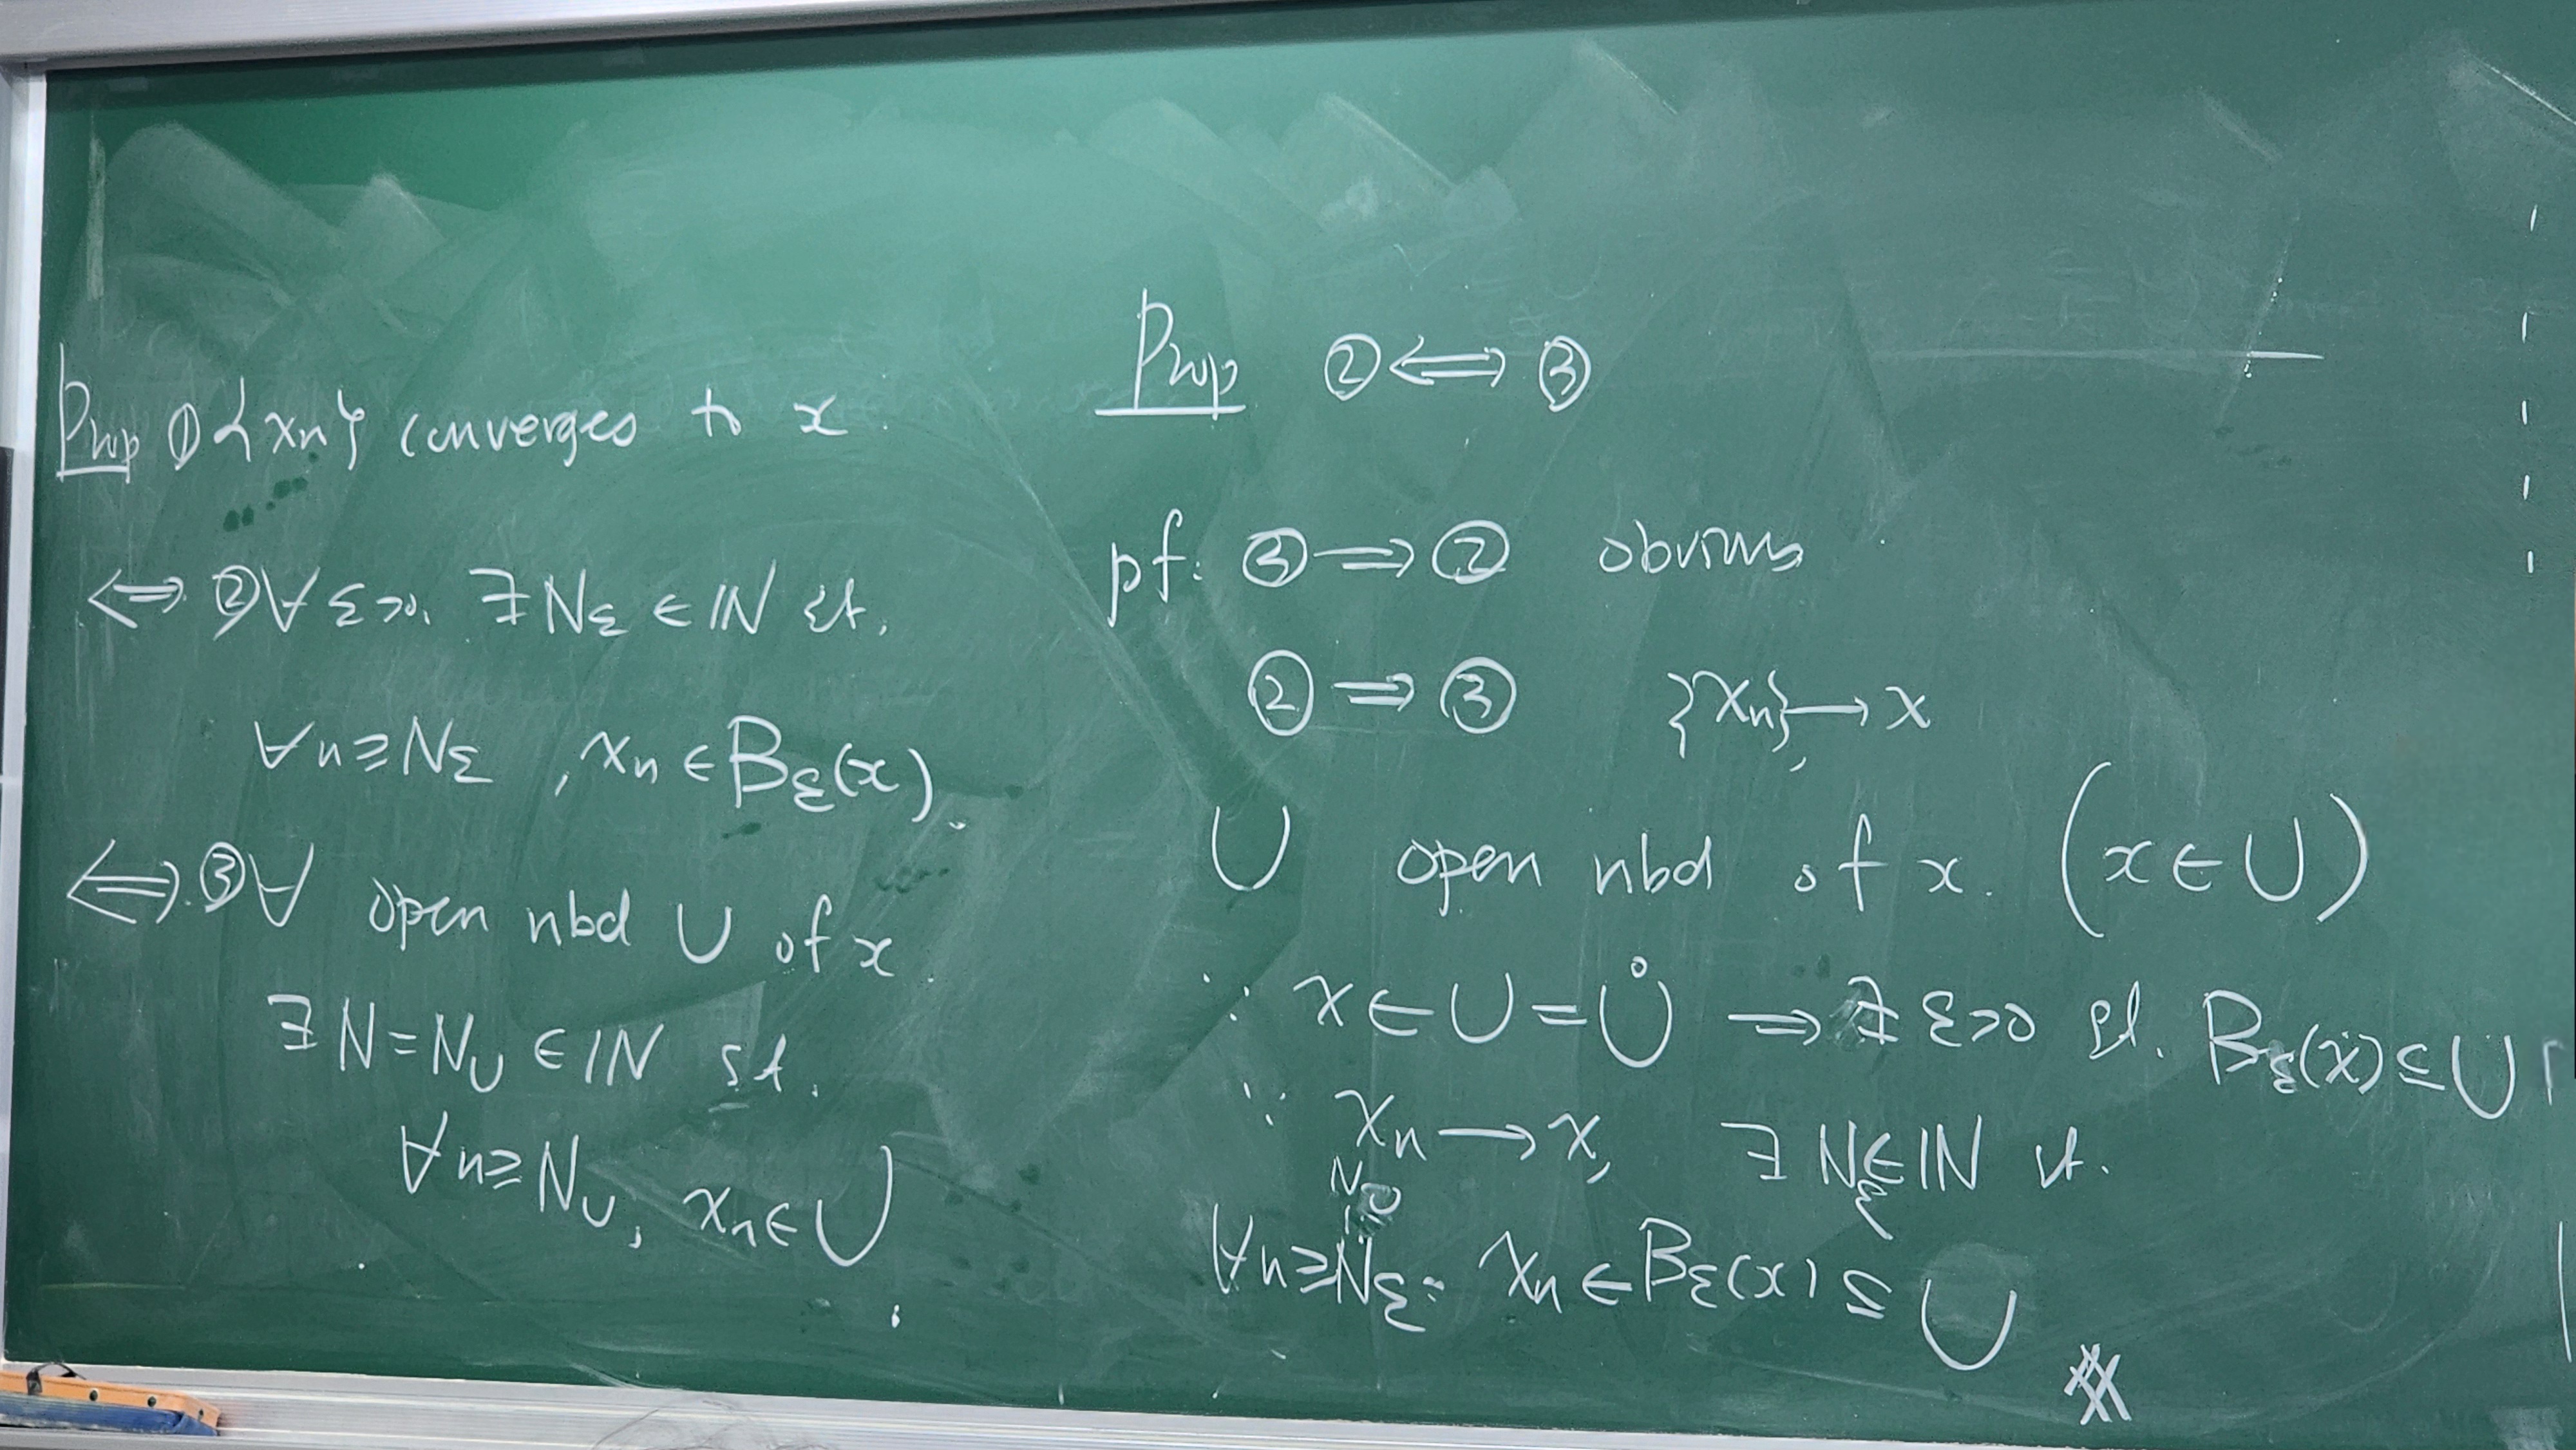 Prop ① {xn} converges to x.
⟺ ② ∀ ε>0, ∃ Nε ∈ ℕ st.
∀n≥Nε , xn ∈ Bε(x).
⟺ ③ ∀ open nbd U of x
∃ N=NU ∈ ℕ st.
∀n≥NU, xn∈U
Prop ② ⟺ ③
pf: ③ ⟹ ② obvious
② ⟹ ③ {xn} → x
U open nbd of x. (x∈U)
∵ x∈U=Ů ⟹ ∃ ε>0 st. Bε(x)⊆U
∵ xn → x, ∃ Nε∈ℕ st.
NU
∀n≥Nε: xn∈Bε(x) ⊆ U